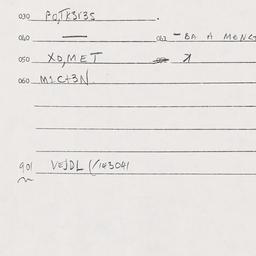 030 PO,TK3535.
040 — 042 -BA A MENCT
050 XO,MET
060 M1C+3N
901 VEJDL (/143041